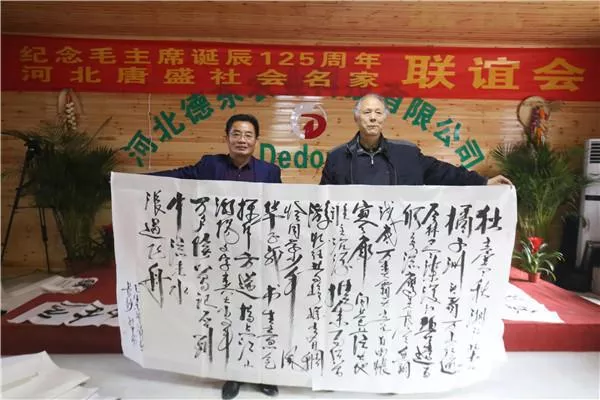 纪念毛主席诞辰125周年
河北唐盛社会名家
联谊会
河北德东
有限公司
Dedo
独立寒秋湘江北
橘子洲头看万山红遍
层林尽染漫江碧透百
舸争流鹰击长空鱼翔
浅底万类霜天竞自由怅
寥廓 问苍茫大地
谁主沉浮 携来百侣曾
游忆往昔峥嵘岁月稠
恰同学少年 风
华正茂 书生意气
挥斥方遒 指点江山
激扬文字粪土当年
万户侯 曾记否到
中流击水
浪遏飞舟